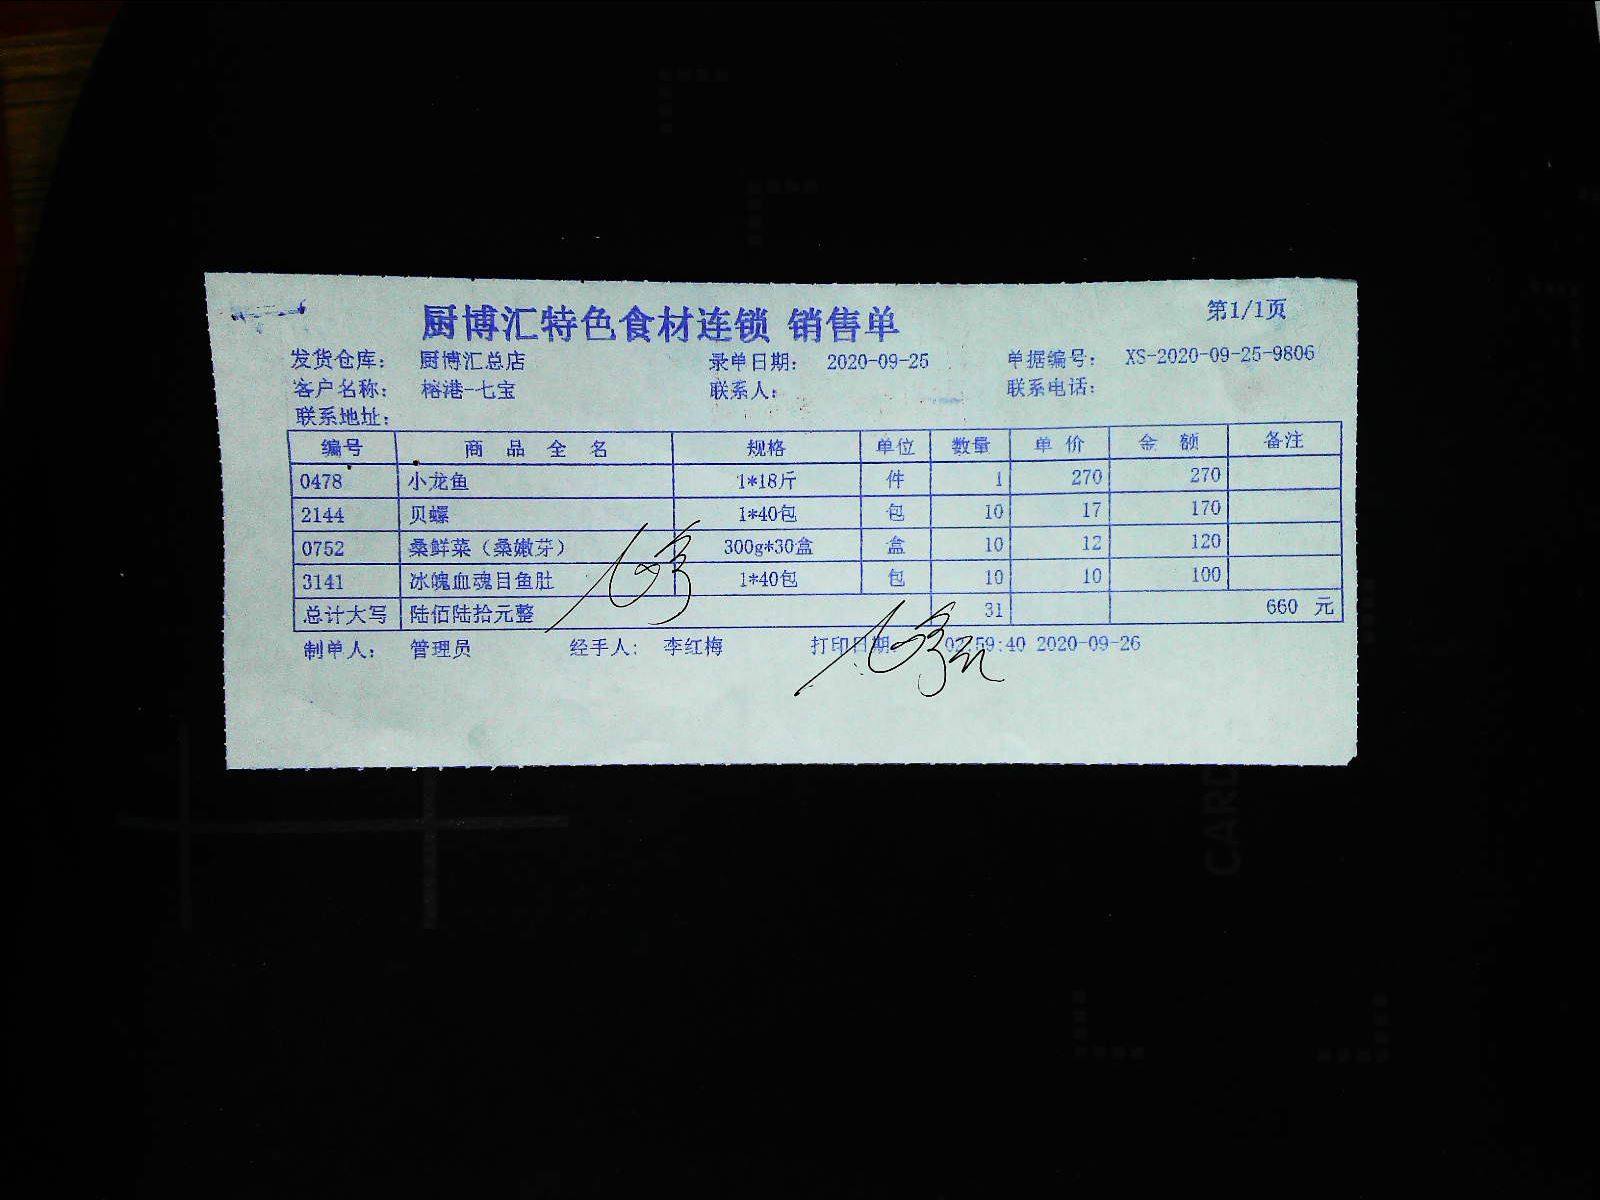 第1/1页
厨博汇特色食材连锁 销售单
发货仓库： 厨博汇总店 录单日期： 2020-09-25 单据编号： XS-2020-09-25-9806
客户名称： 榕港-七宝 联系人： 联系电话：
联系地址：
编号 商 品 全 名 规格 单位 数量 单 价 金 额 备注
0478 小龙鱼 1*18斤 件 1 270 270
2144 贝螺 1*40包 包 10 17 170
0752 桑鲜菜（桑嫩芽） 300g*30盒 盒 10 12 120
3141 冰魄血魂目鱼肚 1*40包 包 10 10 100
总计大写 陆佰陆拾元整 31 660 元
制单人： 管理员 经手人： 李红梅 打印日期： 02:59:40 2020-09-26
CARD